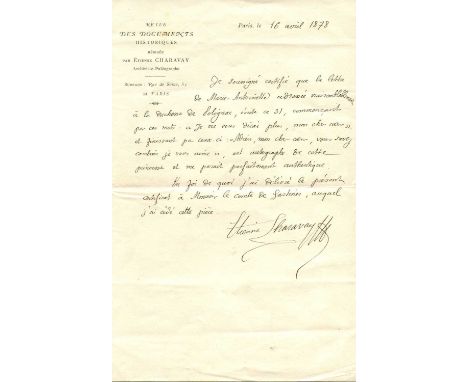 REVUE
DES DOCUMENTS
HISTORIQUES
RÉDIGÉE
PAR ÉTIENNE CHARAVAY
Archiviste-Paléographe
BUREAUX: Rue de Seine,
A PARIS
Paris, le 16 avril 1878
Je soussigné certifie que la lettre
de Marie-Antoinette adressée
à la duchesse de Polignac, écrite ce 31, commençant
par ces mots: « Je ne veux plus, mon cher cœur »
et finissant par ceux-ci « Adieu, mon cher cœur, vous
combien je vous aime », est autographe de cette
princesse et me paraît parfaitement authentique.
En foi de quoi j'ai délivré le présent
certificat à Monsieur le comte de auquel
j'ai cédé cette pièce.
Étienne Charavay